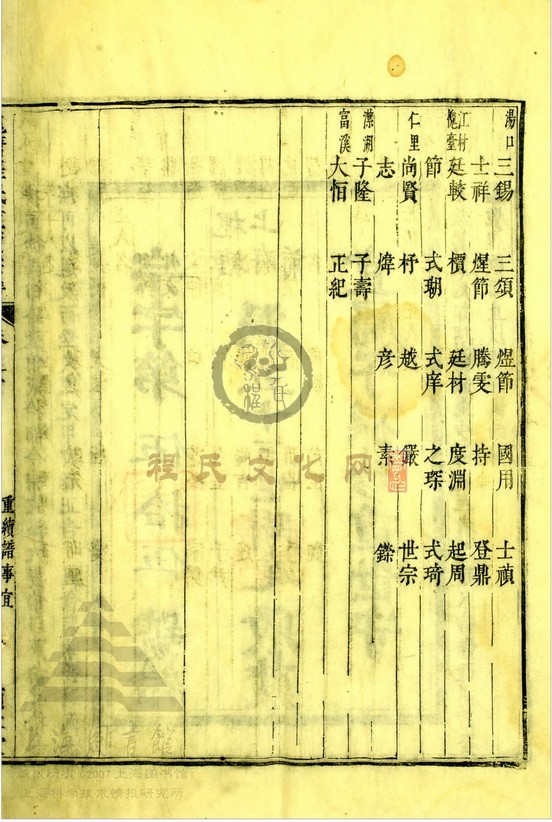 湯口 三錫 三頌 煜節 國用 士禎
士祥 煋節 騰雯 持 登鼎
江村 廷較 檟 廷材 度淵 起周
節 式瑚 式庠 之琛 式琦
仁里 尚賢 杼 越 嚴 世宗
志 煒 彦 素 鑅
子隆 子壽
富溪 大恒 正紀
重續譜事宜
程氏文化网
上海图书馆
版权所有©2007上海图书馆
上海科学技术情报研究所